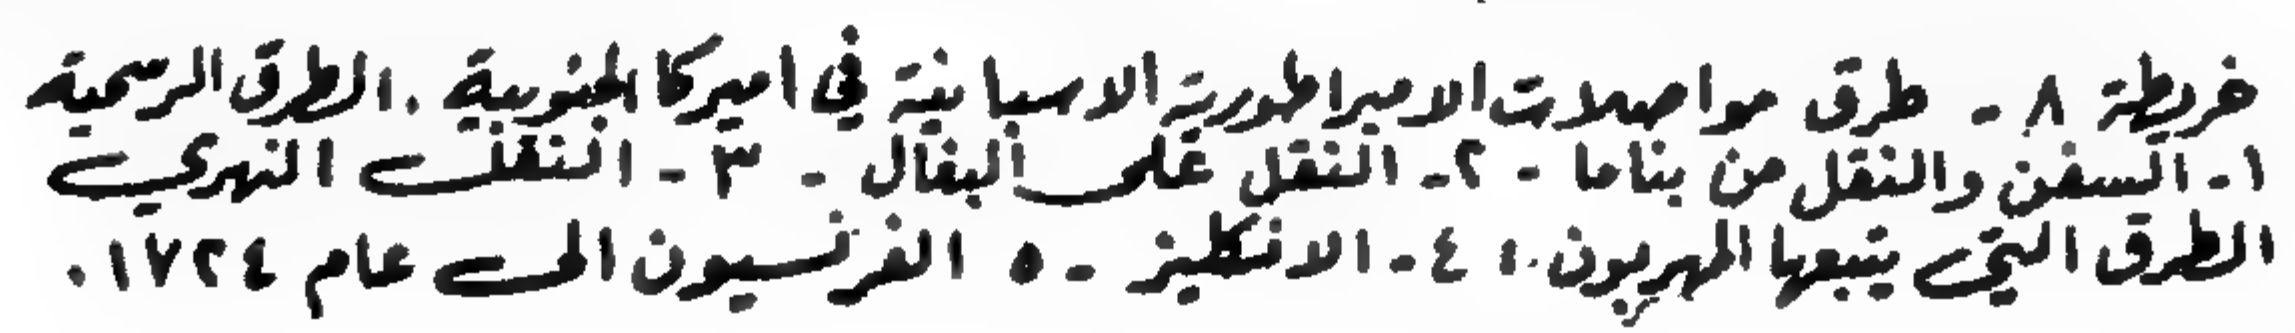 خريطة ٨ - طرق مواصلات الامبراطورية الاسبانية في اميركا الجنوبية . الطرق الرسمية
١ - السفن والنقل من بناما - ٢ - النقل على البغال - ٣ - النقل النهري
الطرق التي يتبعها المهربون . ٤ - الانكليز - ٥ الفرنسيون الى عام ١٧٢٤ .